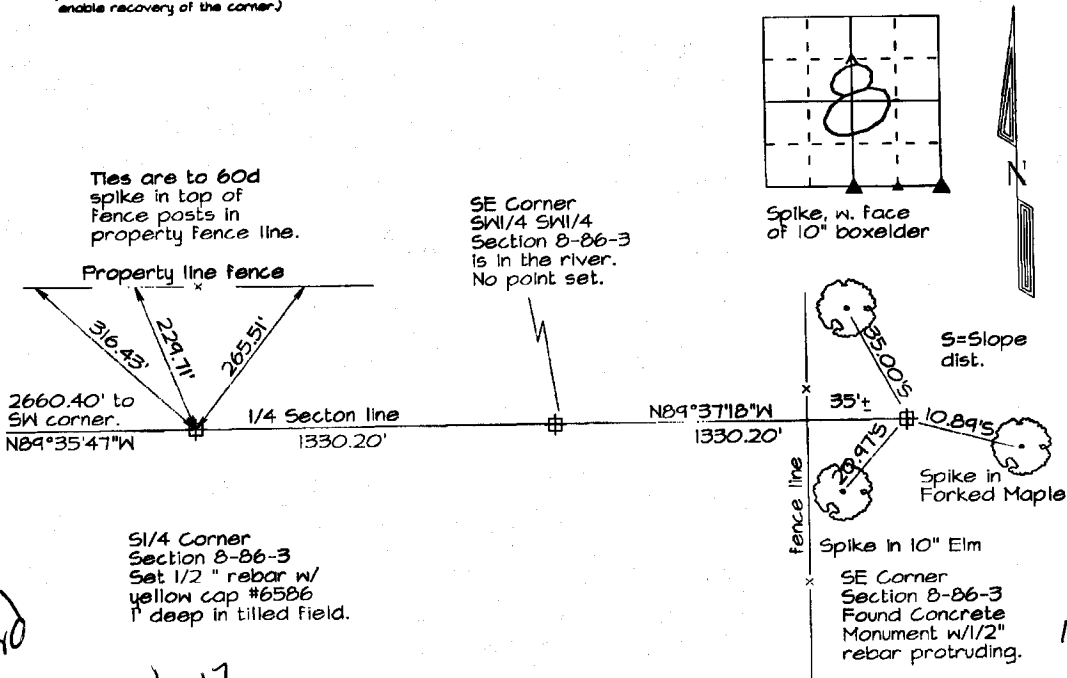 enable recovery of the corner.)
Ties are to 60d
spike in top of
fence posts in
property fence line.
Property line fence
316.43'
229.71'
265.51'
2660.40' to
SW corner.
N89°35'47"W
1/4 Secton line
1330.20'
SE Corner
SW1/4 SW1/4
Section 8-86-3
is in the river.
No point set.
8
Spike, w. face
of 10" boxelder
N
S=Slope
dist.
35.00'S
35'±
N89°37'18"W
1330.20'
10.89'S
29.97'S
Spike in
Forked Maple
fence line
Spike in 10" Elm
S1/4 Corner
Section 8-86-3
Set 1/2 " rebar w/
yellow cap #6586
1' deep in tilled field.
SE Corner
Section 8-86-3
Found Concrete
Monument w/1/2"
rebar protruding.